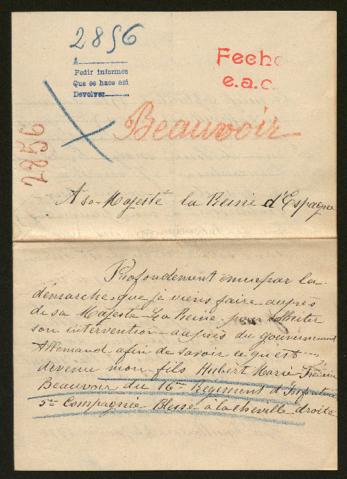 2856
Fecho
e.a.c.
A
Pedir informes
Que se hace así
Devolver
Beauvoir
2856
A sa Majesté la Reine d'Espagne
Profondement émus par la
démarche que je viens faire auprès
de sa Majesté La Reine pour solliciter
son intervention auprès du gouvernement
Allemand afin de savoir ce qu'est
devenu mon fils Hubert Marie
Beauvoir du 16me Régiment d'Infanterie
5me Compagnie Blessé à la cheville droite